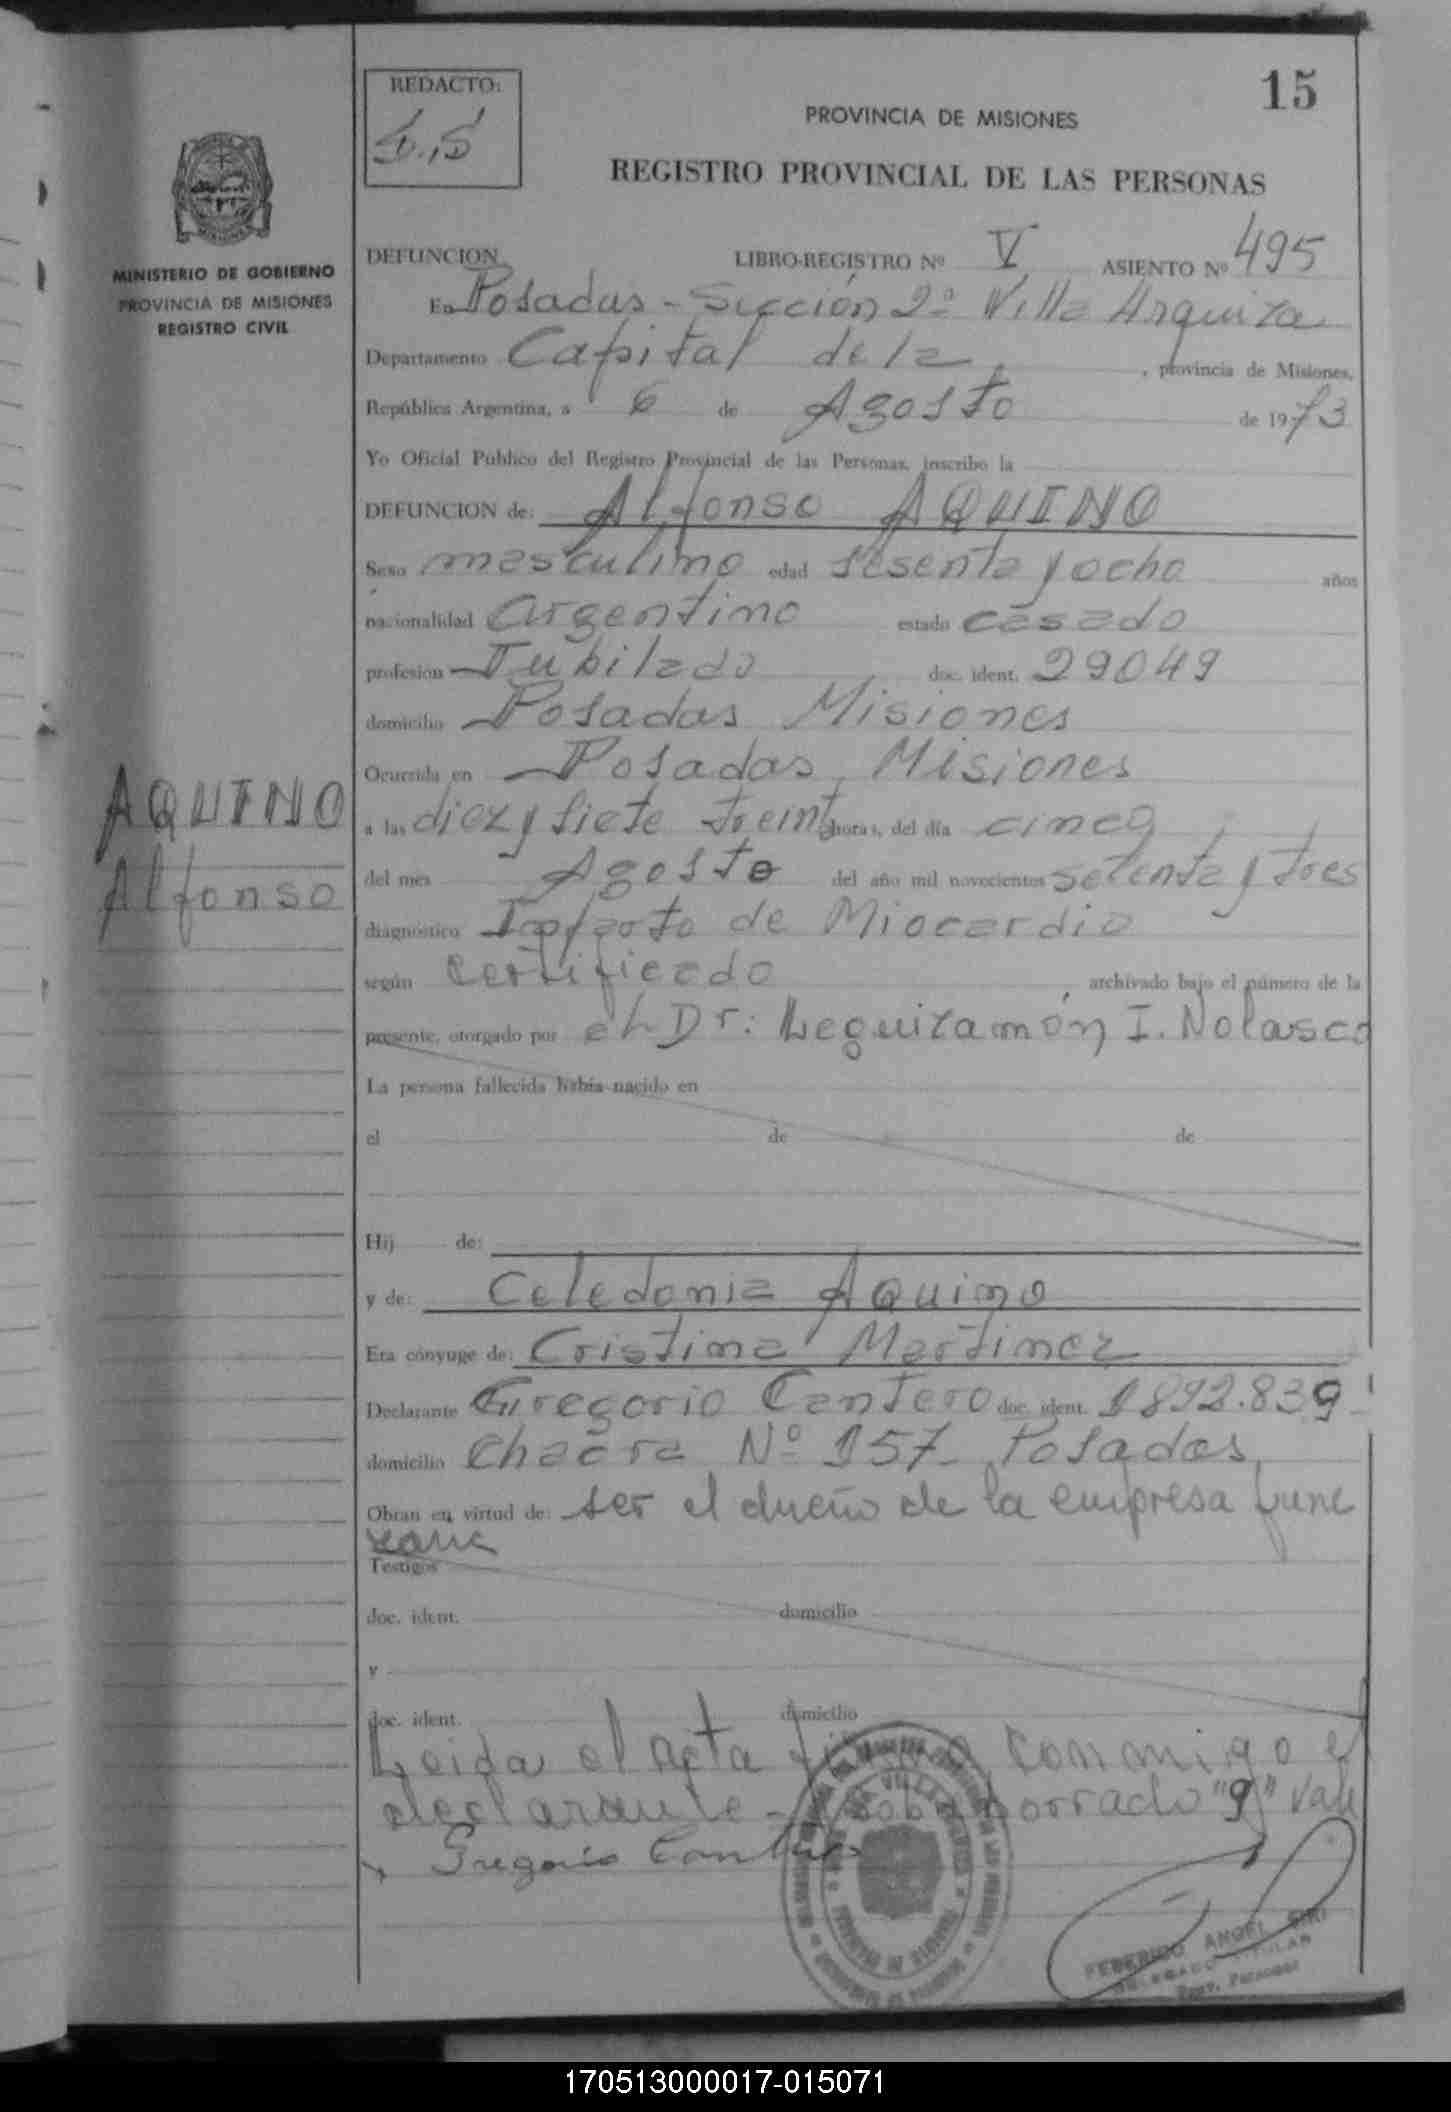 15
REDACTO:
PROVINCIA DE MISIONES
REGISTRO PROVINCIAL DE LAS PERSONAS
MINISTERIO DE GOBIERNO
PROVINCIA DE MISIONES
REGISTRO CIVIL
DEFUNCION LIBRO-REGISTRO Nº V ASIENTO Nº 495
En Posadas - Sección 2ª Villa Urquiza
Departamento Capital de la, provincia de Misiones,
República Argentina, a 6 de Agosto de 1973
Yo Oficial Publico del Registro Provincial de las Personas, inscribo la
DEFUNCION de: Alfonso AQUINO
Sexo masculino edad sesenta y ocho años
nacionalidad argentino estado casado
profesion Jubilado doc. ident. 29049
domicilio Posadas Misiones
Ocurrida en Posadas, Misiones
AQUINO
Alfonso
a las diez y siete treinta horas, del día cinco
del mes Agosto del año mil novecientos setenta y tres
diagnóstico Infarto de Miocardio
según certificado, archivado bajo el número de la
presente, otorgado por el Dr: Leguizamón I. Nolasco
La persona fallecida había nacido en
el de de
Hij de:
y de: Celedonia Aquino
Era cónyuge de: Cristina Martinez
Declarante Gregorio Cantero doc. ident. 1892.839
domicilio Chacra Nº 157- Posadas
Obran en virtud de: ser el dueño de la empresa fune
raria
Testigos
doc. ident. domicilio
y
doc. ident. domicilio
Leida el acta conmigo el
declarante - borrado "9" Vale
Gregorio Cantero
FEDERICO ANGEL
DELEGADO TITULAR
170513000017-015071